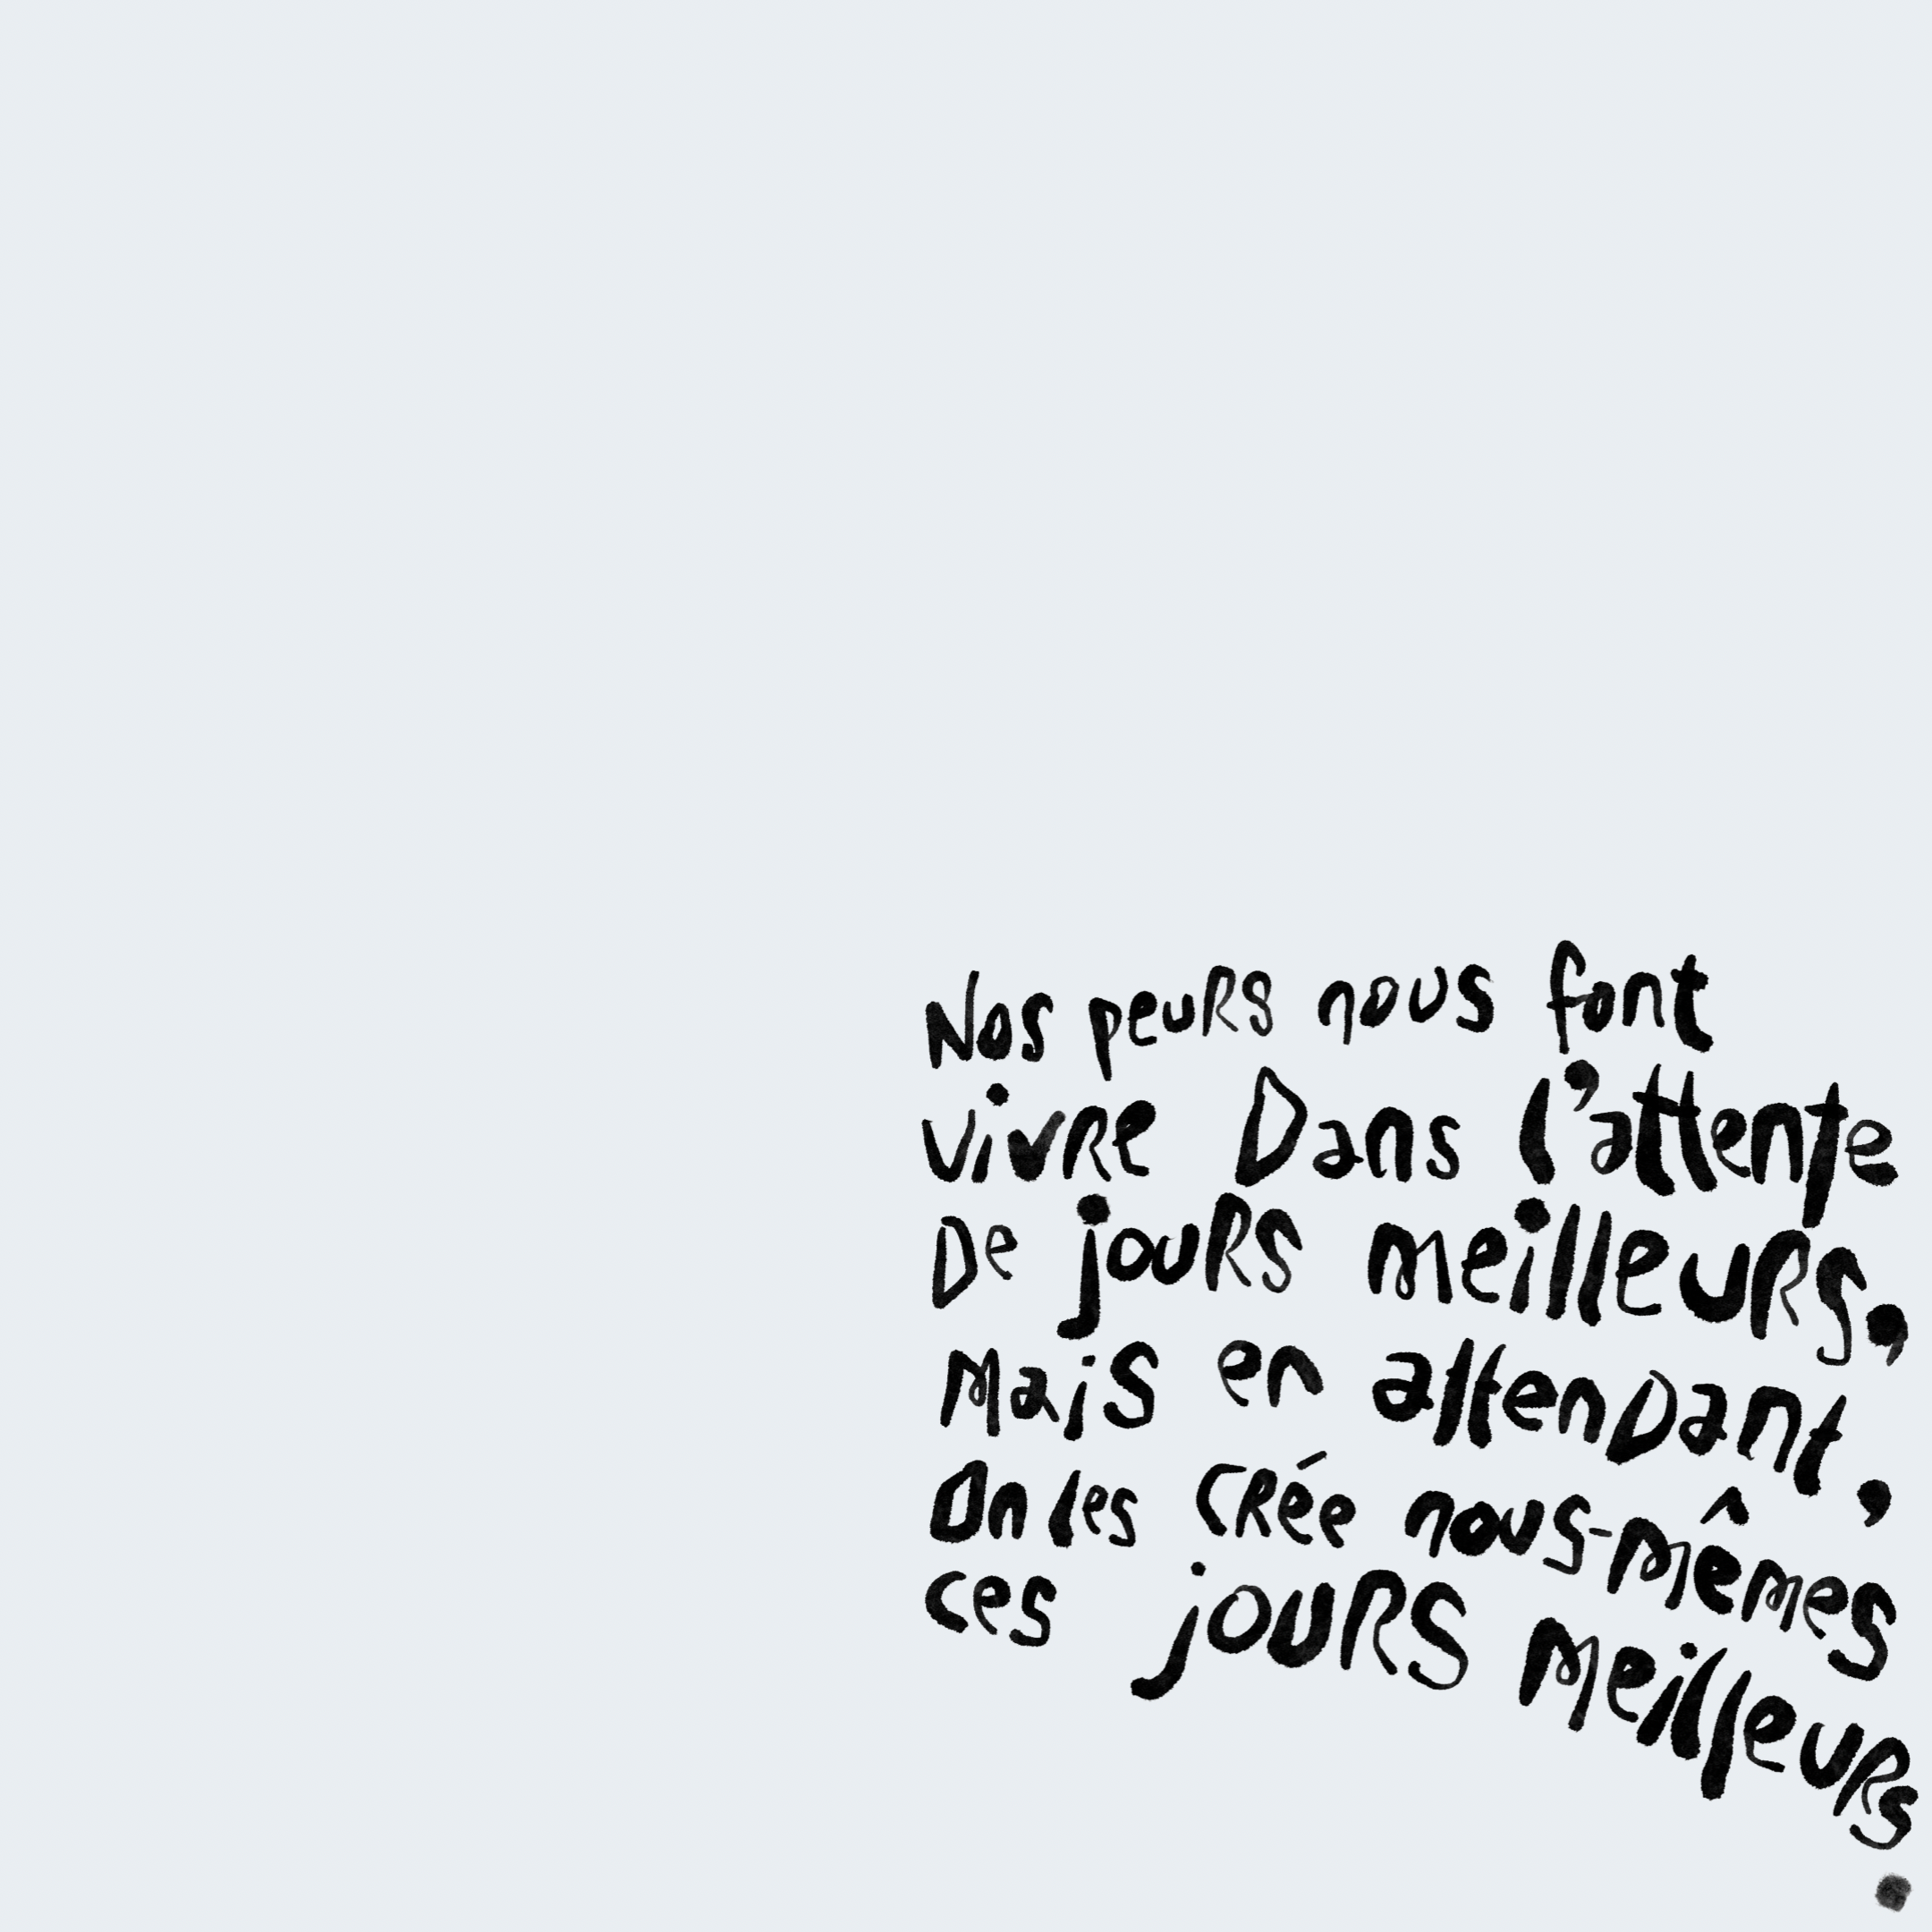 Nos peurs nous font
vivre Dans l'attente
De jours meilleurs,
Mais en attenDant,
On les crée nous-mêmes
ces jours meilleurs
.